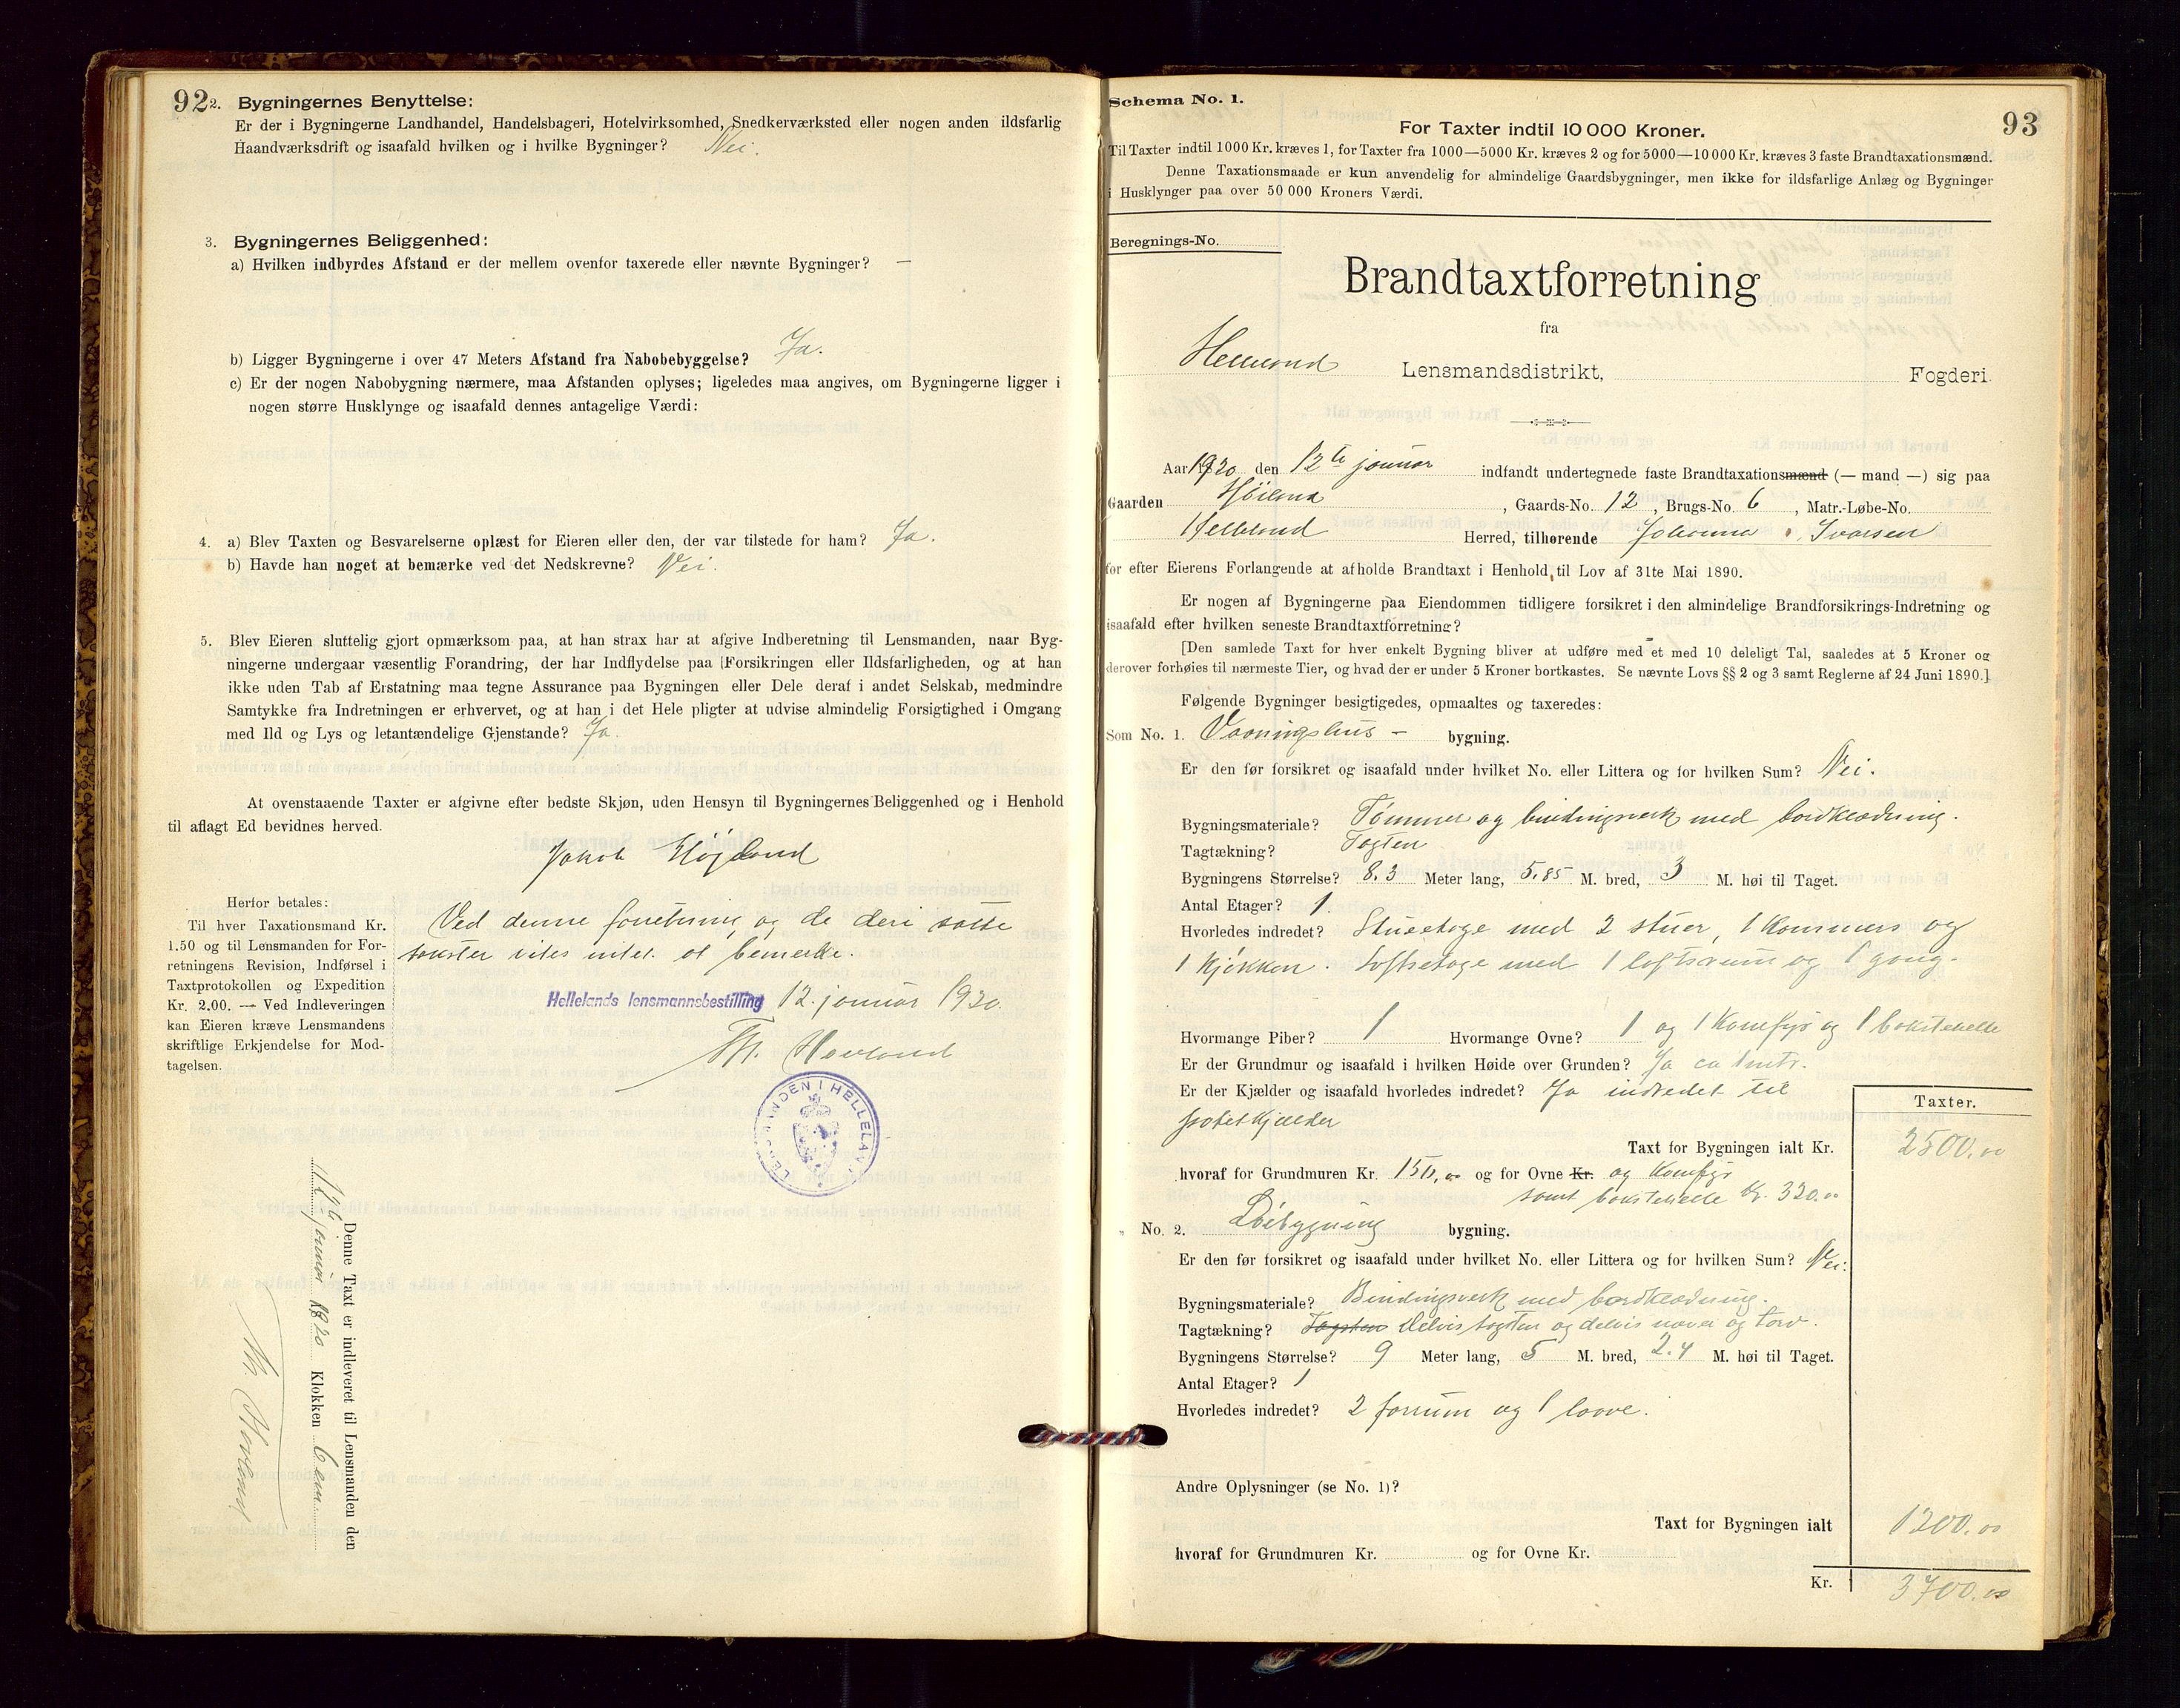 92
2. Bygningernes Benyttelse:
Er der i Bygningerne Landhandel, Handelsbageri, Hotelvirksomhed, Snedkerværksted eller nogen anden ildsfarlig
Haandværksdrift og isaafald hvilken og i hvilke Bygninger? Nei.
3. Bygningernes Beliggenhed:
a) Hvilken indbyrdes Afstand er der mellem ovenfor taxerede eller nævnte Bygninger? —
b) Ligger Bygningerne i over 47 Meters Afstand fra Nabobebyggelse? Ja.
c) Er der nogen Nabobygning nærmere, maa Afstanden oplyses; ligeledes maa angives, om Bygningerne ligger i
nogen større Husklynge og isaafald dennes antagelige Værdi:
4. a) Blev Taxten og Besvarelserne oplæst for Eieren eller den, der var tilstede for ham? Ja.
b) Havde han noget at bemærke ved det Nedskrevne? Nei.
5. Blev Eieren sluttelig gjort opmærksom paa, at han strax har at afgive Indberetning til Lensmanden, naar Byg-
ningerne undergaar væsentlig Forandring, der har Indflydelse paa Forsikringen eller Ildsfarligheden, og at han
ikke uden Tab af Erstatning maa tegne Assurance paa Bygningen eller Dele deraf i andet Selskab, medmindre
Samtykke fra Indretningen er erhvervet, og at han i det Hele pligter at udvise almindelig Forsigtighed i Omgang
med Ild og Lys og letantændelige Gjenstande? Ja.
At ovenstaaende Taxter er afgivne efter bedste Skjøn, uden Hensyn til Bygningernes Beliggenhed og i Henhold
til aflagt Ed bevidnes herved.
Jakob
Herfor betales:
Til hver Taxationsmand Kr.
1.50 og til Lensmanden for For-
retningens Revision, Indførsel i
Taxtprotokollen og Expedition
Kr. 2.00. — Ved Indleveringen
kan Eieren kræve Lensmandens
skriftlige Erkjendelse for Mod-
tagelsen.
Ved denne forretning og de deri satte
takster vites intet at bemerke.
Hellelands lensmannsbestilling 12. januar 1920.
Th. Hovland
LENSMANDEN I HELLELAND
Denne Taxt er indleveret til Lensmanden den
12te januar 1920 Klokken 6 em
Th. Hovland
93
Schema No. 1.
For Taxter indtil 10 000 Kroner.
Til Taxter indtil 1000 Kr. kræves 1, for Taxter fra 1000—5000 Kr. kræves 2 og for 5000—10 000 Kr. kræves 3 faste Brandtaxationsmænd.
Denne Taxationsmaade er kun anvendelig for almindelige Gaardsbygninger, men ikke for ildsfarlige Anlæg og Bygninger
i Husklynger paa over 50 000 Kroners Værdi.
Beregnings-No.
Brandtaxtforretning
fra
Helleland Lensmandsdistrikt, Fogderi.
Aar 1920 den 12te januar indfandt undertegnede faste Brandtaxationsmænd (— mand —) sig paa
Gaarden , Gaards-No. 12, Brugs-No. 6, Matr.-Løbe-No.
Helleland Herred, tilhørende Johanna Ivarsen
for efter Eierens Forlangende at afholde Brandtaxt i Henhold til Lov af 31te Mai 1890.
Er nogen af Bygningerne paa Eiendommen tidligere forsikret i den almindelige Brandforsikrings-Indretning og
isaafald efter hvilken seneste Brandtaxtforretning? —
[Den samlede Taxt for hver enkelt Bygning bliver at udføre med et med 10 deleligt Tal, saaledes at 5 Kroner og
derover forhøies til nærmeste Tier, og hvad der er under 5 Kroner bortkastes. Se nævnte Lovs §§ 2 og 3 samt Reglerne af 24 Juni 1890.]
Følgende Bygninger besigtigedes, opmaaltes og taxeredes:
Som No. 1. Vaaningshus - bygning.
Er den før forsikret og isaafald under hvilket No. eller Littera og for hvilken Sum? Nei.
Bygningsmateriale? Tømmer og bindingsverk med bordklædning.
Tagtækning? Tagsten
Bygningens Størrelse? 8.3 Meter lang, 5.85 M. bred, 3 M. høi til Taget.
Antal Etager? 1.
Hvorledes indredet? Stueetage med 2 stuer, 1 kammers og
1 kjøkken. Loftsetage med 1 loftsrum og 1 gang.
Hvormange Piber? 1 Hvormange Ovne? 1 og 1 komfyr og 1 bakstehelle
Er der Grundmur og isaafald i hvilken Høide over Grunden? Ja ca 1 mtr.
Er der Kjælder og isaafald hvorledes indredet? Ja indredet til
potetkjælder
Taxter.
Taxt for Bygningen ialt Kr. 2500.00
hvoraf for Grundmuren Kr. 150,00 og for Ovne Kr. og komfyr
samt bakstehelle kr. 320.00
" No. 2. Løebygning bygning.
Er den før forsikret og isaafald under hvilket No. eller Littera og for hvilken Sum? Nei.
Bygningsmateriale? Bindingsverk med bordklædning.
Tagtækning? Tagsten delvis tagsten og delvis næver og torv.
Bygningens Størrelse? 9 Meter lang, 5 M. bred, 2.4 M. høi til Taget.
Antal Etager? 1
Hvorledes indredet? 2 forrum og 1 laave.
Andre Oplysninger (se No. 1)?
Taxt for Bygningen ialt 1200.00
hvoraf for Grundmuren Kr. og for Ovne Kr.
Kr. 3700.00